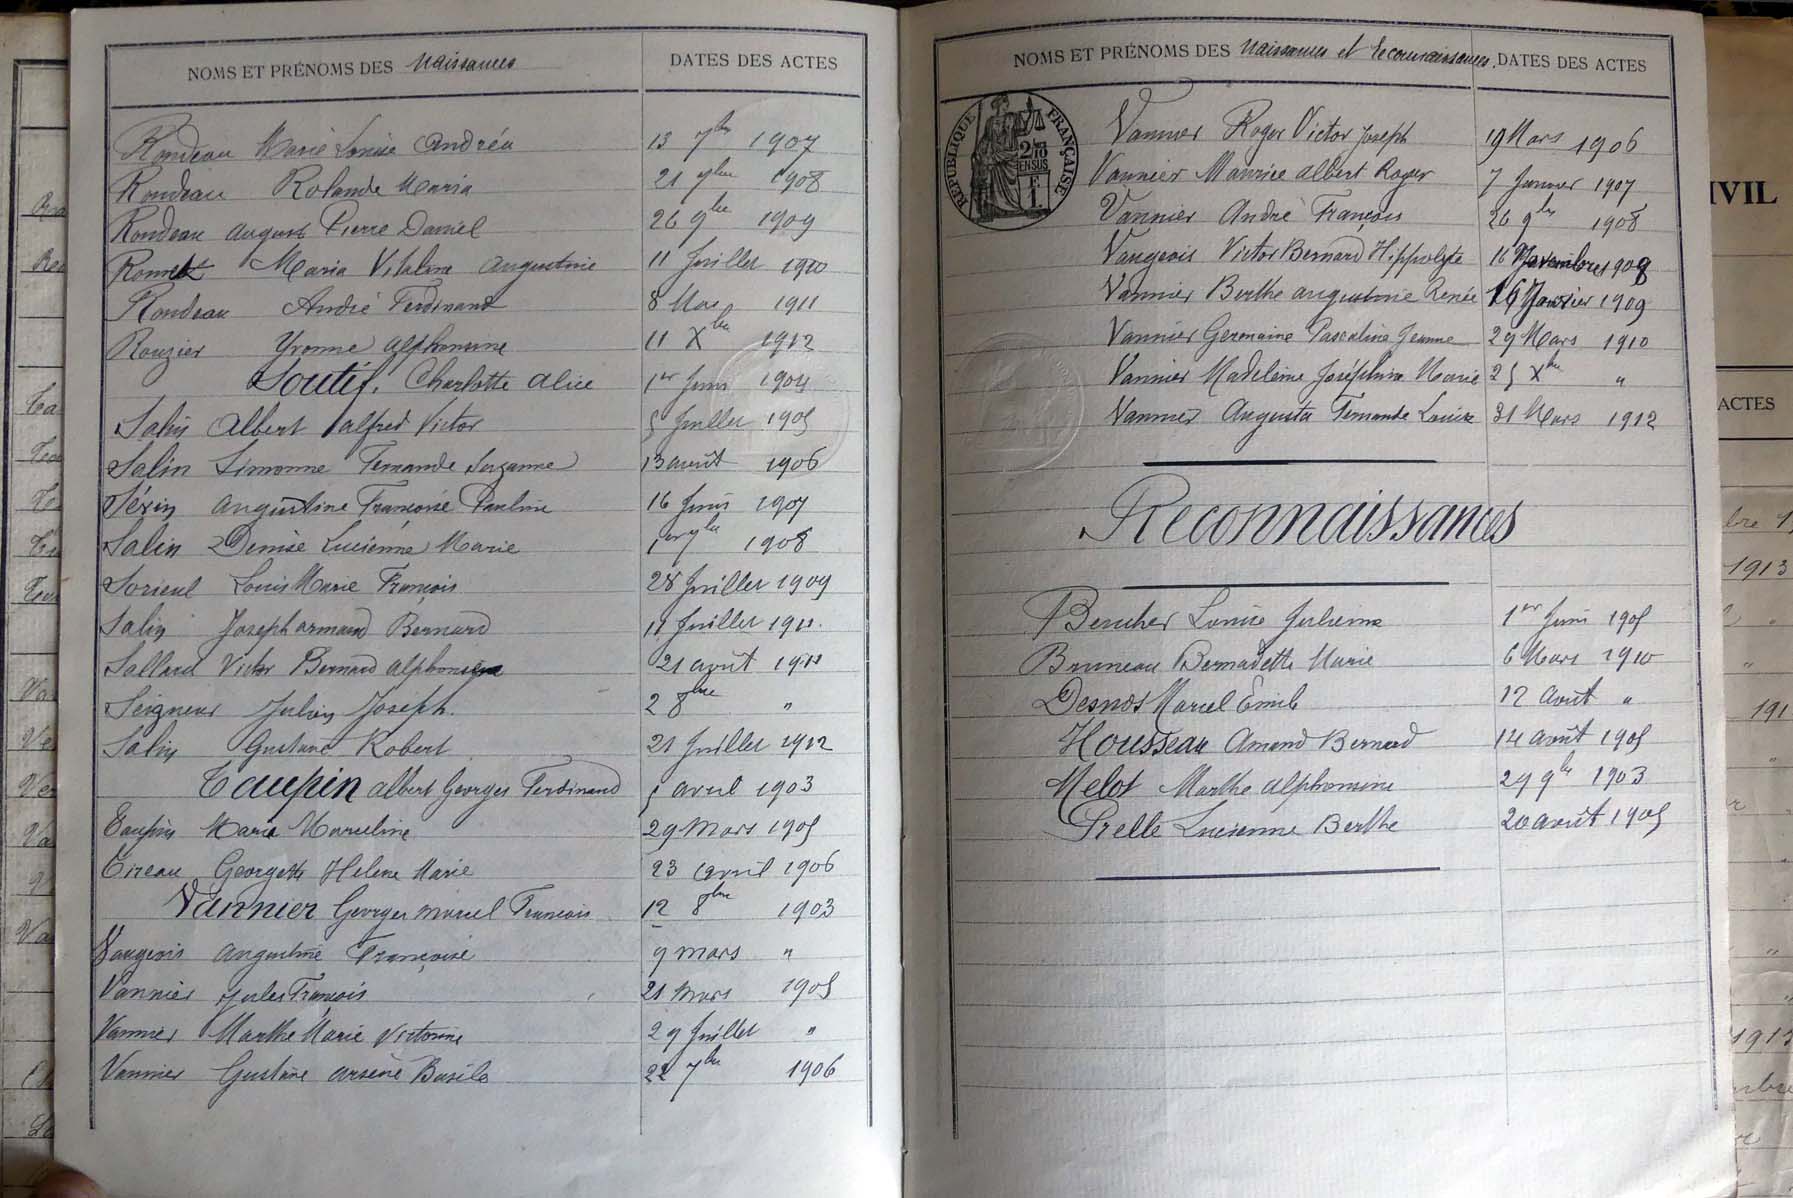 NOMS ET PRÉNOMS DES Naissances DATES DES ACTES
Rondeau Marie Louise Andréa 13 7bre 1907
Rondeau Rolande Maria 21 9bre 1908
Rondeau August Pierre Daniel 26 9bre 1909
Maria Vitaline Augustine 11 Juillet 1910
Rondeau André Ferdinand 8 Mars 1911
Rouzier Yvonne Alphonsine 11 Xbre 1912
Soutif, Charlotte Alice 1er Juin 1904
Salin Albert Alfred Victor 5 Juillet 1905
Salin Simonne Fernande Suzanne 13 août 1906
Sérin Augustine Françoise Pauline 16 Juin 1907
Salin Denise Lucienne Marie 1er 7bre 1908
Sorieul Louis Marie François 28 Juillet 1909
Salin Joseph Armand Bernard 11 Juillet 1911.
Salland Victor Bernard Alphonse 21 août 1911
Seigneur Julien Joseph. 2 8bre "
Salin Gustave Robert 21 Juillet 1912
Taupin Albert Georges Ferdinand 5 avril 1903
Taupin Marie Marceline 29 Mars 1905
Tireau Georgette Hélène Marie 23 avril 1906
Vannier Georges Marcel François 12 8bre 1903
Vaugeois Augustine Françoise 9 mars "
Vannier Jules François 21 Mars 1905
Vannier Marthe Marie Victorine 29 Juillet "
Vannier Gustave Arsène Basile 22 7bre 1906
NOMS ET PRÉNOMS DES Naissances et Reconnaissances. DATES DES ACTES
REPUBLIQUE FRANÇAISE
2/10 EN SUS
F.
1.
Vannier Roger Victor Joseph 19 Mars 1906
Vannier Maurice Albert Roger 7 Janvier 1907
Vannier André François 26 9bre 1908
Vaugeois Victor Bernard Hippolyte 16 Novembre 1908
Vannier Berthe Augustine Renée 16 Janvier 1909
Vannier Germaine Pascaline Jeanne 29 Mars 1910
Vannier Madeleine Joséphine Marie 25 Xbre "
Vannier Augusta Fernande Louise 31 Mars 1912
Reconnaissances
Bencher Louise Julienne 1er Juin 1905
Bruneau Bernadette Marie 6 Mars 1910
Desnos Marcel Emile 12 août "
Housseau Amand Bernard 14 août 1905
Melot Marthe Alphonsine 29 9bre 1903
Prelle Lucienne Berthe 20 août 1905
IVIL
ACTES
bre 1
1913
191
1913